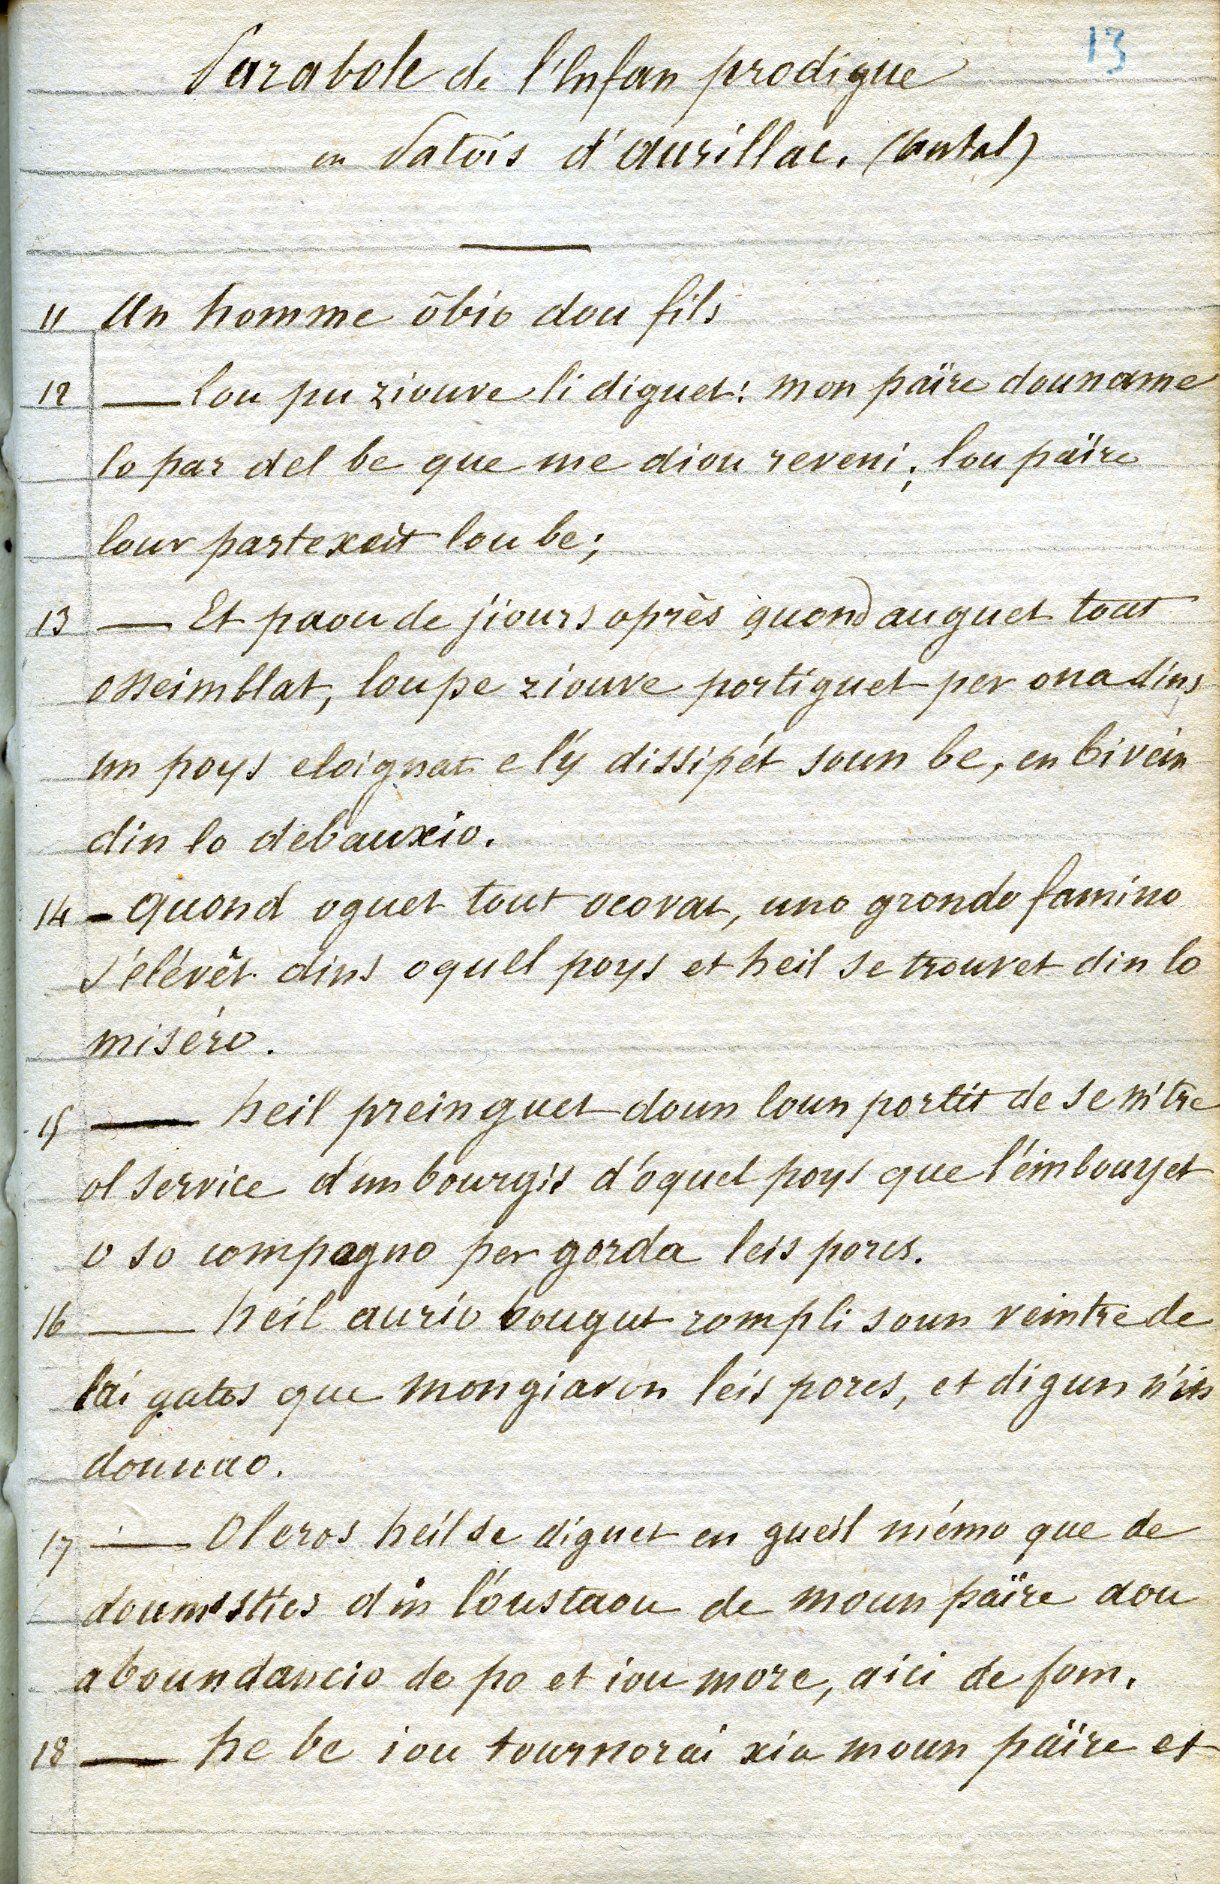 13
Parabole de l'Enfan prodigue
en Patois d'aurillac. (Cantal)
11 Un homme ōbio dou fils
12 — lou pu ziouve li diguet: mon païre douname
lo par del be que me diou reveni; lou païre
lour partexet lou be;
13 — Et paou de jiours oprès quond auguet tout
osseimblat, lou pe ziouve portiguet per ona dins
un poys eloignat e l'y dissipét soun be, en bivein
din lo debauxio.
14 - quond oguet tout ocovat, uno grondo famino
s'élévêt dins oquel poys et heil se trouvet din lo
miséro.
15 — heil preinguet doun loun portit de se mitre
ol service d'un bourgis d'oquel poys que l'éimbouyet
o so compagno per gorda leis porcs.
16 — heil aurio bougut rompli soun veintre de
lai gatos que mongiavon leis porcs, et digun n'in
dounao.
17 — Oleros heil se diguet en gueil mémo que de
doumestios din l'oustaou de moun païre aou
aboundancio de po et iou more, aici de fom.
18 — he be iou tournorai xia moun païre et